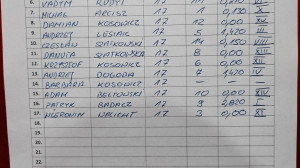 6. VADIM RUDYI 17
7. MICHAŁ ARCISZ 17 1
8. DAMIAN KOSOWICZ 17 12 0,00 XV
9. ANDRZEJ LESIAK 17 5 1,420 III
10. CZESŁAW SZATKOWSKI 17 14 0,150 VII
11. DANUTA SZATKOWSKA 17 8 0,00
12. KRZYSZTOF KOSOWICZ 17 6 0,00 XI
13. ANDRZEJ DOGODA 17 7 1420 IV
14. BARBARA KOSOWICZ — — —
15. ADAM BEŁTOWSKI 17 10 0,00
16. PATRYK BADACZ 17 9 2,820 I
17. HIERONIM 17 3 0,00 XI